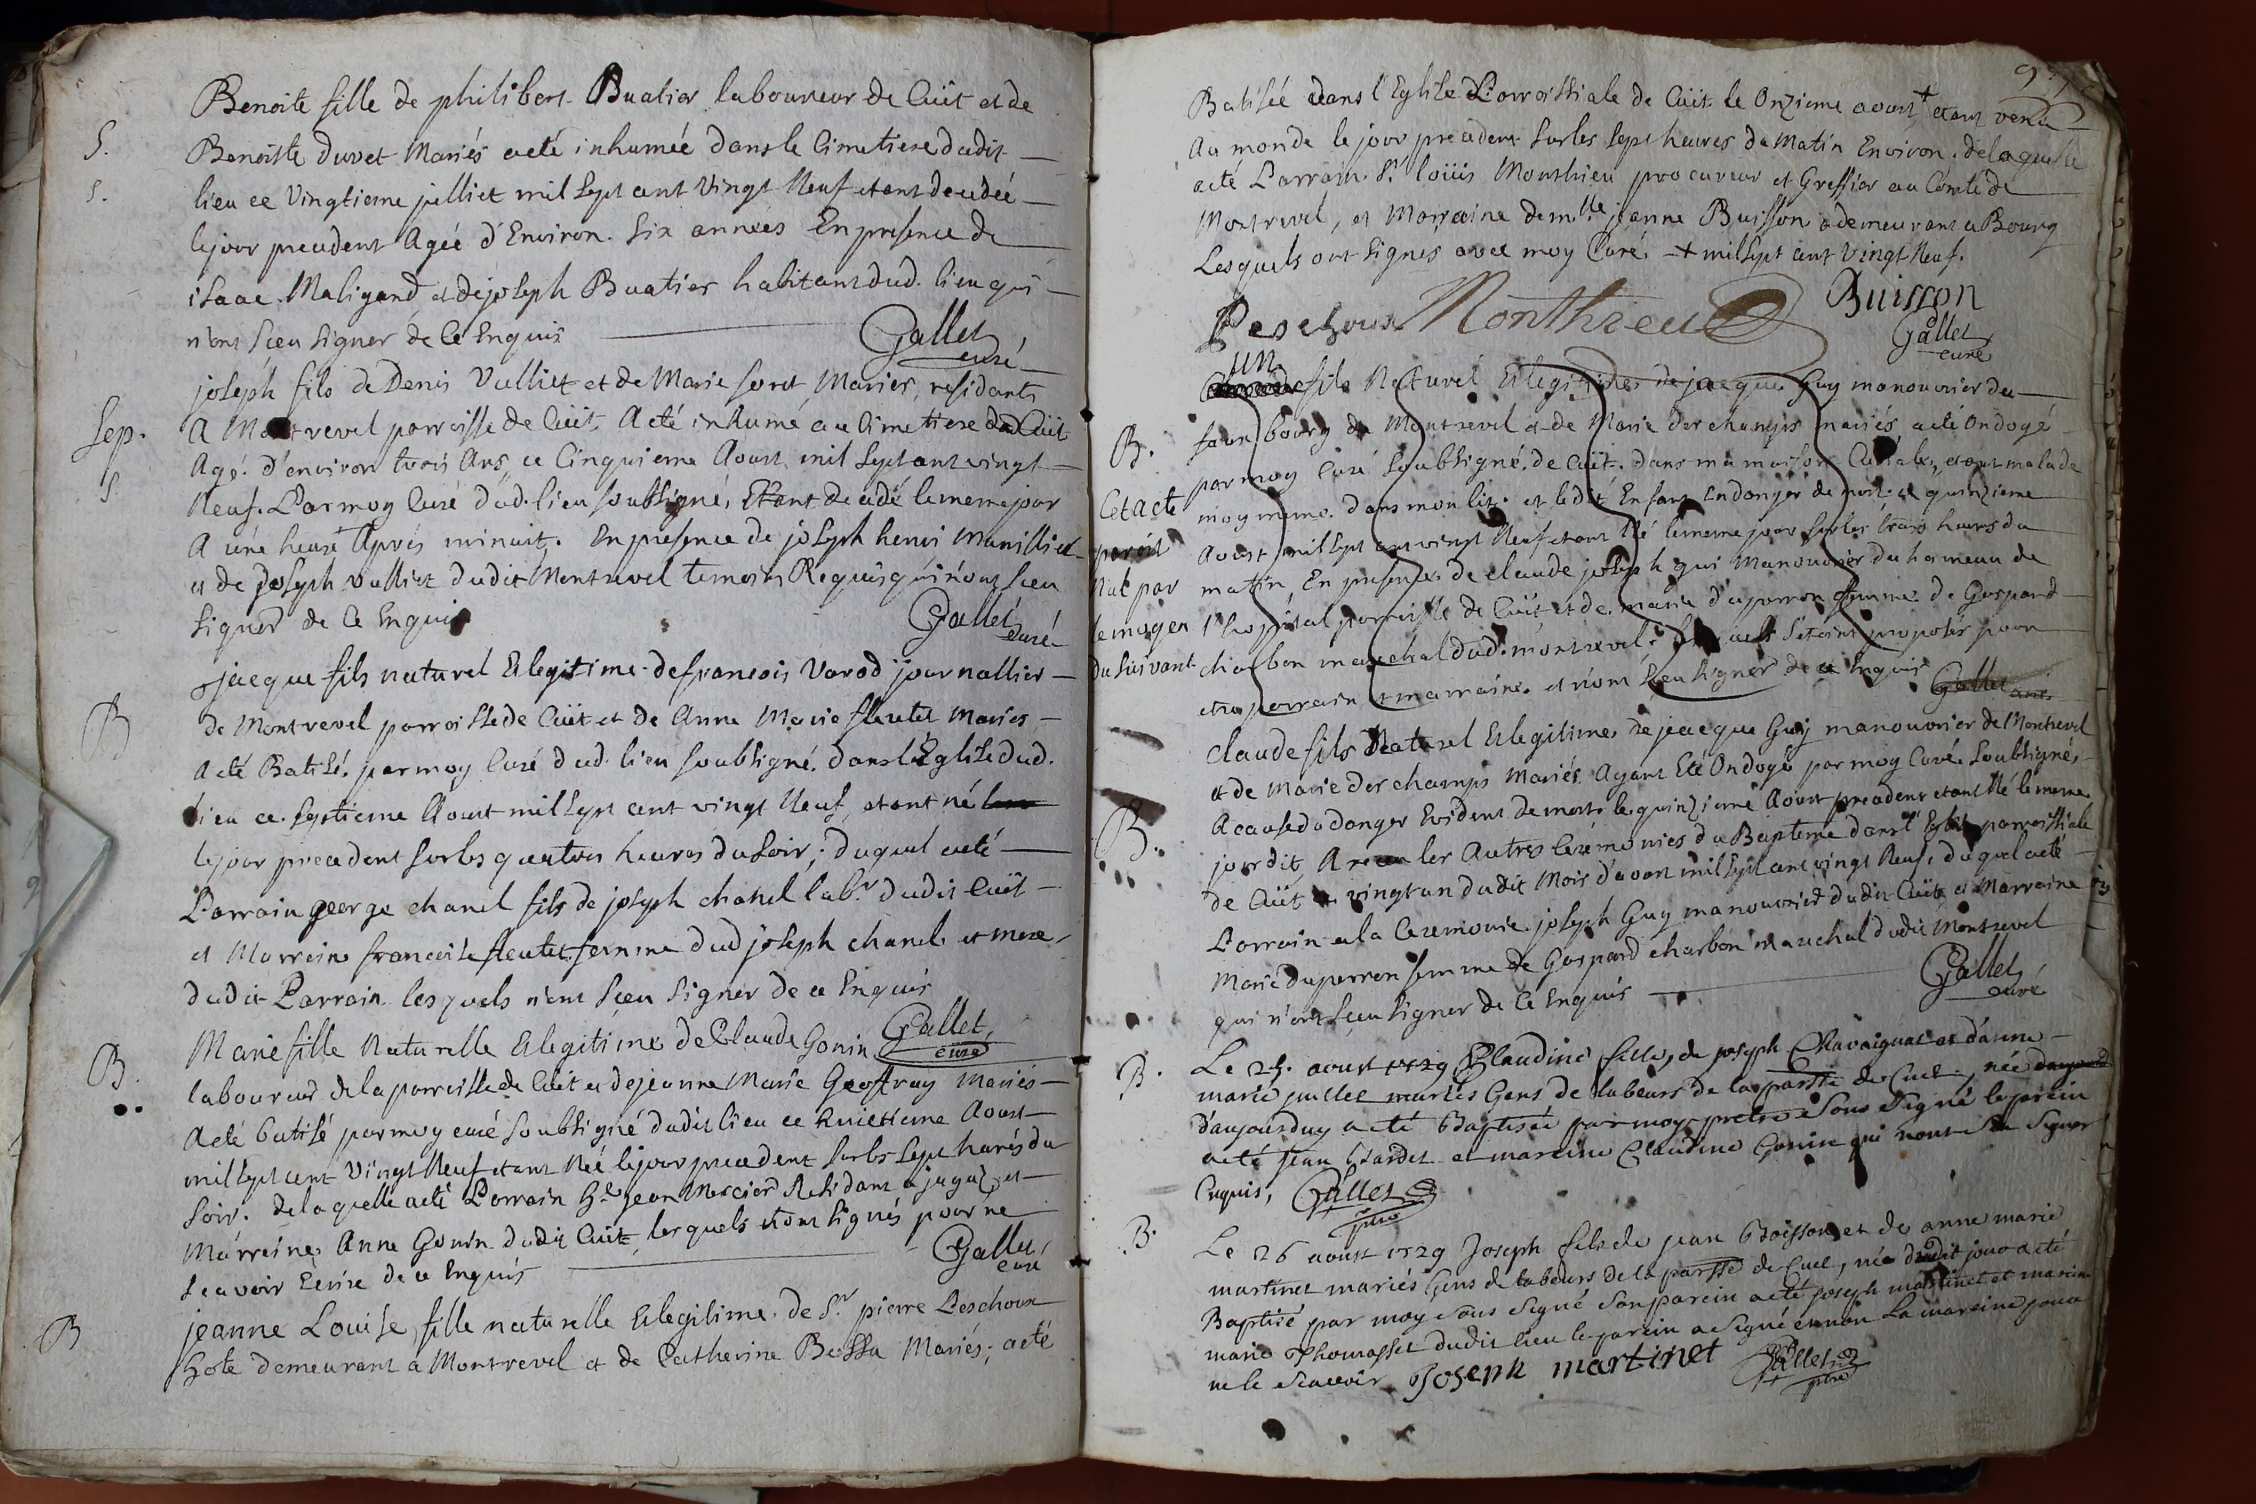 Benoite fille de philibert Buatier laboureur de Cüit et de
S.
Benoiste duvet Mariés a eté inhumée dans le Cimetiere dudit
S.
lieu ce Vingtieme julliet mil Sept cent Vingt Neuf etant decedée
le jour precedent Agée d'Environ Six années En presence de
isaac Maligand et de joseph Buatier habitant dud. lieu qui
n'ont sceu signer de Ce Enquis
Gallet curé
joseph fils de Denis Vulliet et de Marie soret Mariés, residants
Sep.
A Montrevel parroisse de Cüit, A eté inhumé au Cimetiere du Cüit
S
Agé d'environ trois Ans, ce Cinquieme Aoust mil Sept cent vingt
Neuf. Par moy Curé dud. lieu soubsigné, Etant decedé le meme jour
A une heure Aprés minuit. En presence de joseph henri Manilliet
et de joseph Vulliet dudit Montrevel temoins Requis qui n'ont sceu
signer de Ce Enquis
Gallet curé
jacque fils naturel Et legitime de francois Varod journallier
B
de Montrevel parroisse de Cüit et de Anne Marie fleutet Mariés
a eté Batisé par moy Curé dud. lieu soubsigné dans l'Eglise dud.
lieu ce Septieme Aoust mil Sept cent vingt Neuf, etant né
le jour precedent sur les quatres heures du Soir; duquel a eté
Parrain george chanel fils de joseph chanel lab.r dudit Cuit
et Marreine francoise fleutet femme dud joseph chanel et mere
dudit Parrain lesquels n'ont sceu signer de ce Enquis
Gallet curé
Marie fille Naturelle Et legitime de Claude Gonin
B.
laboureur de la parroisse de Cüit et de jeanne Marie Geoffray Mariés
a eté batisé par moy curé soubsigné dudit lieu ce huictieme Aoust
mil Sept cent Vingt Neuf etant Née le jour precedent sur les Sept hures du
Soir. de laquelle a eté Parrain jean Mercier Residant a jayaz et
Marreine Anne Gonin dudit Cüit lesquels n'ont signés pour ne
sçavoir Ecrire de ce Enquis
Gallet curé
B
jeanne Louise fille naturelle Et legitime de S.r pierre Peschoux
hote demeurant a Montrevel et de Catherine Bossu Mariés, a eté
Batisée dans l'Eglise Parroissiale de Cüit le Onzieme aoust + etant venu
Au monde le jour precedent sur les Sept heures du Matin Environ. de laquelle
a eté Parrain S.r loüis Monthieu procureur et Greffier au Comté de
Montrevel, et Marreine dem.lle jeanne Buisson demeurant a Bourg
Lesquels ont signés avec moy Curé. + mil Sept cent Vingt Neuf.
Peschoux Monthieu Buisson
Gallet curé
un
fils Naturel Et legitime de jacque Guy manouvrier du
B.
faux bourg de Montrevel et de Marie des champs mariés a eté ondogé
par moy Curé soubsigné de Cüit. dans ma maison Curiale, etant malade
Cet acte
moy meme dans mon lit. et ledit Enfant En danger de mort ce quinzieme
paroit
Aoust mil Sept cent vingt Neuf etant Né le meme jour sur les trois heures du
Nul par
matin, En presence de claude joseph gui Manouvrier du hameau de
le moyen
l'hopital parroisse de Cüit et de marie duperron femme de Gaspard
du suivant
charbon marechal dud. montrevel. lesquels s'etoint proposés pour
etre parrain et marraine et n'ont sceu signer de ce Enquis
Gallet curé
Claude fils Naturel Et legitime de jeacque Guy manouvrier de Montrevel
et de Marie des champs Mariés Ayant Eté Ondogé par moy Curé Soubsigné
B.
A cause du danger Evident de mort le quinzieme Aoust precedent etant Né le meme
jour dit, A receu les Autres Cérémonies du Bapteme dans l'Eglise parroissiale
de Cüit le vingt un dudit Mois d'aoust mil Sept cent vingt Neuf. duquel a eté
Parrain a la Ceremonie joseph Guy manouvrier dudit Cüit et Marreine
Marie duperron femme de Gaspard charbon marechal dudit Montrevel
qui n'ont sceu signer de Ce Enquis
Gallet curé
B.
Le 25. aoust 1729 Claudine fille de joseph Chavaignat et d'anne
marie guillet mariés Gens de labeurs de la parsse de Cuet, née
d'aujourduy a eté Baptisée par moy pretre sous signé le parein
a eté jean Bardet et mareine Claudine Gonin qui n'ont scu signer
Enquis,
Gallet ptre
B.
Le 26 aoust 1729 Joseph fils de jean Boisson et de anne marie
martinet mariés Gens de labeurs de la parsse de Cuet, née dudit jour a eté
Baptisé par moy sous signé son parein a eté joseph martinet et mareine
marie Thomasset dudit lieu le parein a signé et non La mareine pour
ne le scavoir
Joseph martinet
Gallet ptre